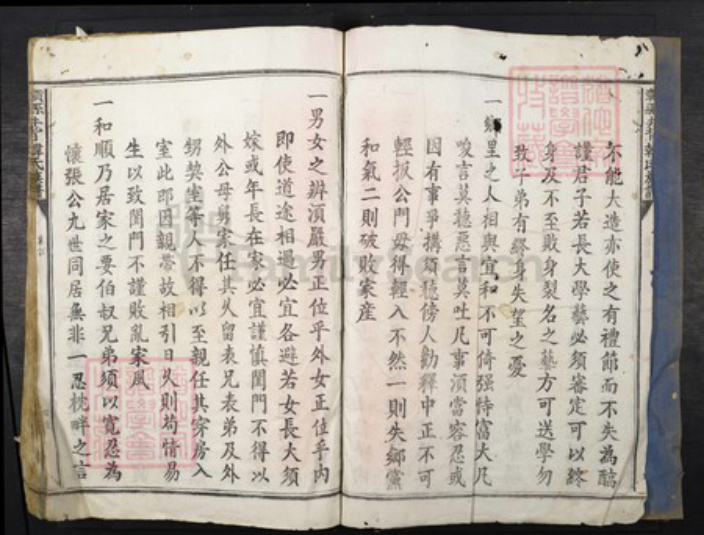 不能大造亦使之有禮節而不失為醕
謹君子若長大學藝必須審定可以終
身及不至敗身裂名之藝方可送學勿
致子弟有終身失望之憂
一鄉里之人相與宜和不可倚強恃富大凡
唆言莫聽惡言莫吐凡事須當容忍或
因有事爭搆須聽傍人勸釋中正不可
輕扳公門毋得輕入不然一則失鄉黨
和氣二則破敗家産
一男女之辨須嚴男正位乎外女正位乎内
即使道途相遇必宜各避若女長大須
嫁或年長在家必宜謹慎閨門不得以
外公母舅家任其久留表兄表弟及外
甥契室等人不得以至親任其穿房入
室此即因親帶故相引日久則苟情易
生以致閨門不謹敗亂家風
一和順乃居家之要伯叔兄弟須以寬忍為
懷張公九世同居無非一忍枕畔之言
FamilySearch